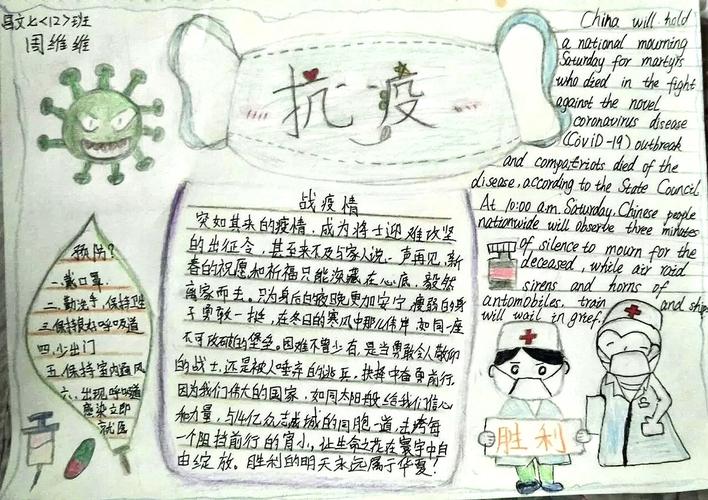 昌文七<12>班
周维维
抗疫
China will hold
a national mourning
Saturday for martyrs
who died in the fight
against the novel
coronavirus disease
(CoviD-19) outbreak
and compatriots died of the
disease, according to the State Council
At 10:00 a.m. Saturday, Chinese people
nationwide will observe three minutes
of silence to mourn for the
deceased, while air raid
sirens and horns of
antomobiles, train and ships
will wait in grief.
战疫情
突如其来的疫情,成为将士迎难攻坚
的出征令,甚至来不及与家人说一声再见,新
春的祝愿和祈福只能深藏在心底,毅然
离家而去。只为身后的夜晚更加安宁,瘦弱的身
子勇敢一挺,在冬日的寒风中那么伟岸,如同一座
不可攻破的堡垒。困难不曾少有,是当勇敢令人敬仰
的战士,还是被人唾弃的逃兵,抉择中奋勇前行
因为我们伟大的国家,如同太阳般给我们信心
和力量,与14亿众志成城的同胞一道,去痛每
一个阻挡前行的宵小,让生命之花在寰宇中自
由绽放。胜利的明天永远属于华夏!
预防?
一.戴口罩
二.勤洗手,保持卫生
三.保持良好呼吸道
四.少出门
五.保持室内通风
六.出现呼吸道
感染立即
就医
胜利